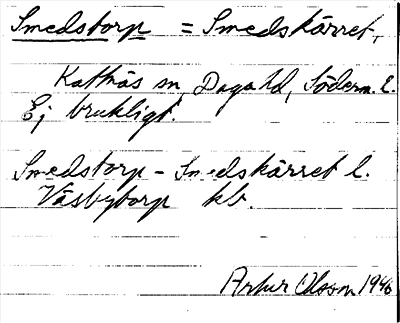 Smedstorp = Smedskärret,
Kattnäs sn, Daga hd, Söderm. l.
Ej brukligt.
Smedstorp - Smedskärret l.
Väsbytorp kb.
Artur Olsson 1946